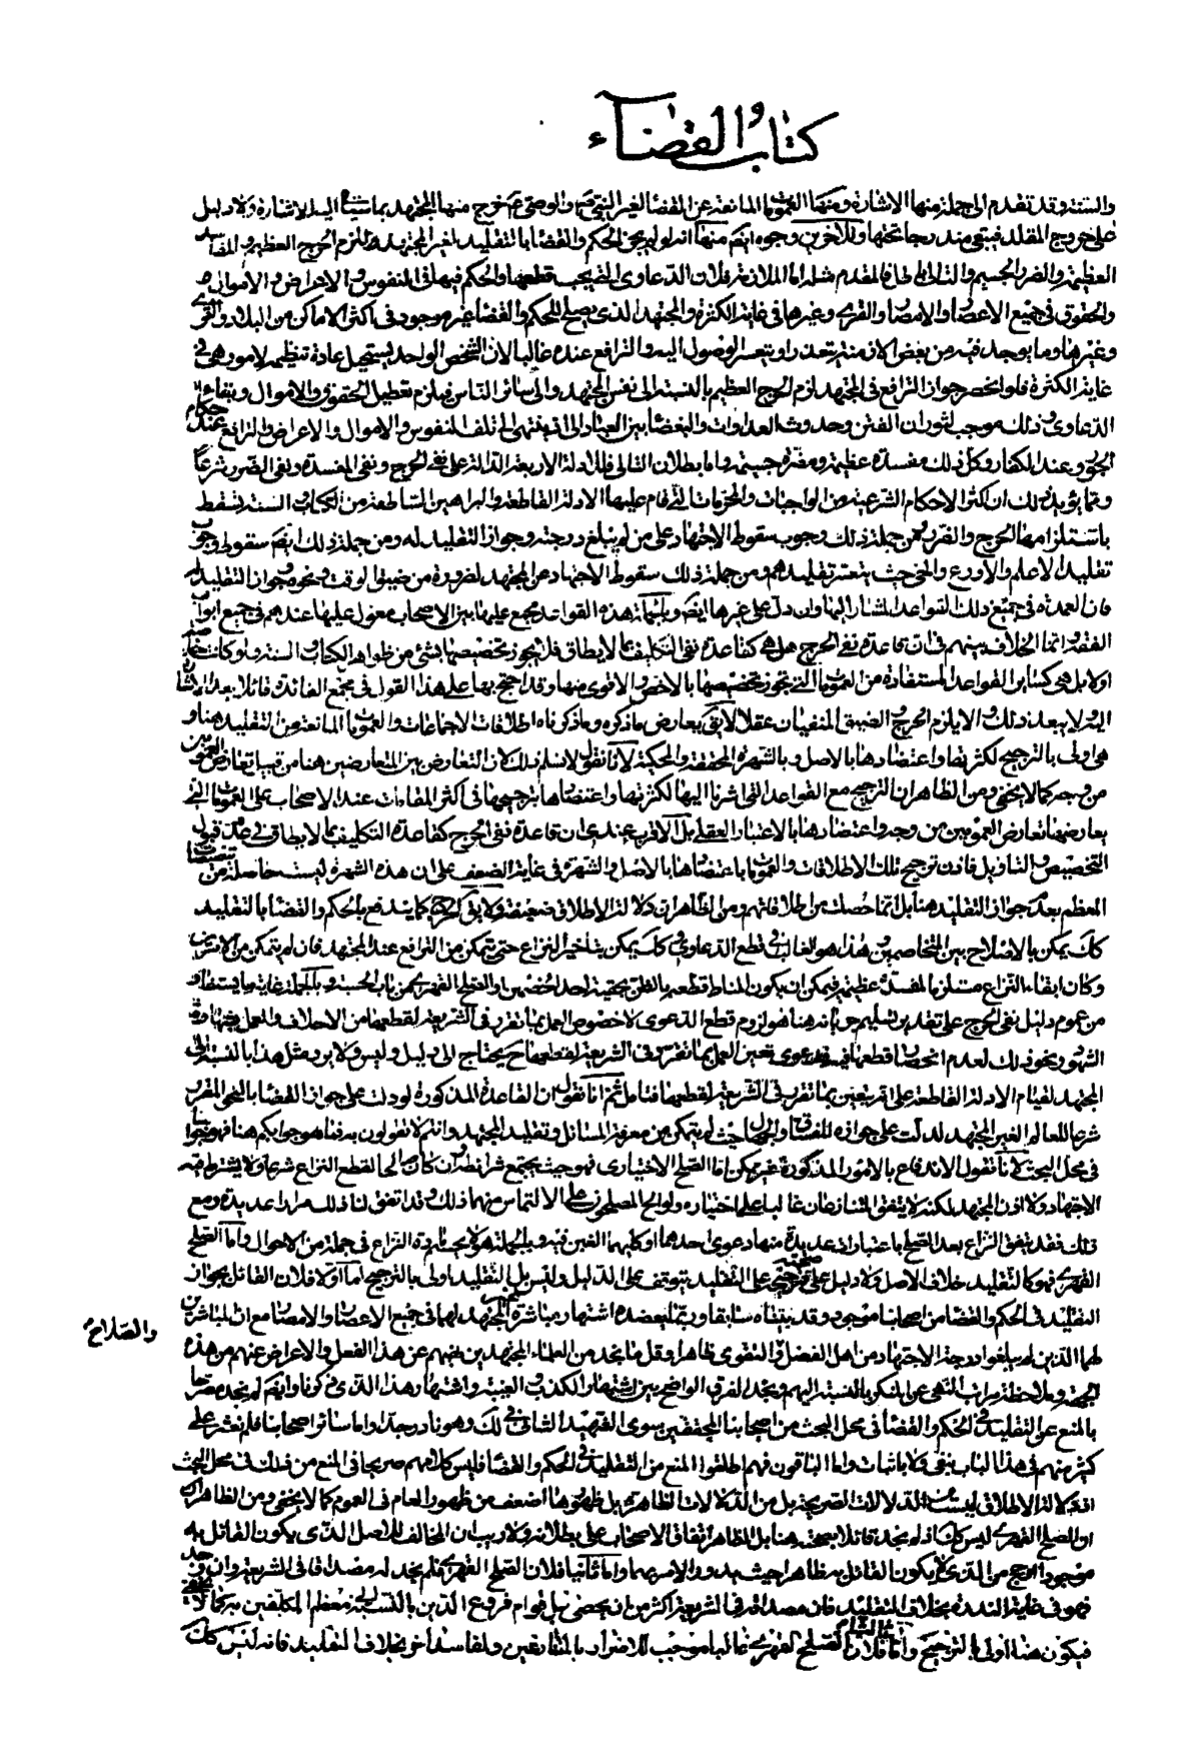 كتاب القضاء
والسنة وقد تقدم الى جملة منها الاشارة ومنها العمومات المانعة عن القضاء لغير النبي ص والوصي ع خرج منها المجتهد بما سيأتى اليه الاشارة ولا دليل
على خروج المقلد فيبقى مندرجا تحتها وللآخرين وجوه ايضا منها انه لو لم يجز الحكم والقضاء بالتقليد لغير المجتهد للزم الحرج العظيم والمفاسد
العظيمة والضرر الجسيم والتالى باطل فالمقدم مثله اما الملازمة فلان الدعاوى التى يجب قطعها والحكم فيها فى النفوس والاعراض والاموال
والحقوق فى جميع الاعصار والامصار والقرى وغيرها فى غاية الكثرة والمجتهد الذى يصلح للحكم والقضاء غير موجود فى اكثر الاماكن من البلاد والقرى
وغيرها وما يوجد فيه من بعض الازمنة يتعذر او يتعسر الوصول اليه والترافع عنده غالبا لان الشخص الواحد يستحيل عادة تنظيمه لامور هى فى
غاية الكثرة فلو انحصر جواز الترافع فى المجتهد لزم الحرج العظيم بالنسبة الى نفس المجتهد والى سائر الناس فيلزم تعطيل الحقوق والاموال وبقاء
الدعاوى وذلك موجب لثوران الفتن وحدوث العداوات والبغضاء بين العباد التى ينتهى الى تلف النفوس والاموال والاعراض والترافع عند حكام
الجور وعند الكفار وكل ذلك مفسدة عظيمة ومضرة جسيمة واما بطلان التالى فللادلة الاربعة الدالة على نفى الحرج ونفى المفسدة ونفى الضرر شرعا
ومما يؤيد ذلك ان اكثر الاحكام الشرعية من الواجبات والمحرمات التى قام عليها الادلة القاطعة والبراهين الساطعة من الكتاب والسنة يسقط
باستلزامها الحرج والضرر فمن جملة ذلك وجوب سقوط الاجتهاد على من لم يبلغ درجته وجواز التقليد له ومن جملة ذلك ايضا سقوط وجوب
تقليد الاعلم والاورع والحى حيث يتعسر تقليدهم ومن جملة ذلك سقوط الاجتهاد عن المجتهد لضرورة من ضيق الوقت ونحوه وجواز التقليد له
فان العمدة فى جميع ذلك القواعد المشار اليها وان دل على غيرها ايضا وبالجملة هذه القواعد مجمع عليها بين الاصحاب معول عليها عندهم فى جميع ابواب
الفقه وانما الخلاف بينهم فى ان قاعدة نفى الحرج هل هى كقاعدة نفى التكليف بما لا يطاق فلا يجوز تخصيصها بشئ من ظواهر الكتاب والسنة ولو كانت خاصة
اولا بل هى كسائر القواعد المستفادة من العمومات التى يجوز تخصيصها بالاخص والاقوى منها وقد احتج بها على هذا القول فى مجمع الفائدة قائلا بعد الاشارة
اليه لا يبعد ذلك والا يلزم الحرج والضيق المنفيان عقلا لا يقال يعارض ما ذكره وما ذكرناه اطلاقات الاجماعات والعمومات المانعة من التقليد هنا و
هى اولى بالترجيح لكثرتها واعتضادها بالاصل وبالشهرة المحققة والمحكية لانا نقول لا نسلم ذلك لان التعارض بين المتعارضين هنا من قبيل تعارض العمومين
من وجه كما لا يخفى ومن الظاهر ان الترجيح مع القواعد التى اشرنا اليها لكثرتها واعتضادها بترجيحها فى اكثر المقامات عند الاصحاب على العمومات التى
يعارضها تعارض العمومين من وجه واعتضادها بالاعتبار العقلى بل الاقرب عندى ان قاعدة نفى الحرج كقاعدة التكليف بما لا يطاق فى عدم قبول
التخصيص والتاويل فاذن ترجيح تلك الاطلاقات والعمومات باعتضادها بالاصل والشهرة فى غاية الضعف على ان هذه الشهرة ليست حاصلة من تنصيص
المعظم بعدم جواز التقليد هنا بل انما حصلت من اطلاقاتهم ومن الظاهر ان دلالة الاطلاق ضعيفة ولا يقال الحرج كما يندفع بالحكم والقضاء بالتقليد
كك يمكن بالاصلاح بين المتخاصمين وهذا هو الغالب فى قطع الدعاوى وكك يمكن بتاخير النزاع حتى يتمكن من الترافع عند المجتهد فان لم يتمكن من الامرين
وكان ابقاء النزاع مستلزما لمفسدة عظيمة فيمكن ان يكون المناط قطعه بالظن بحقية احد الخصمين والصلح القهرى من باب الحسبة وبالجملة غاية ما يستفاد
من عموم دليل نفى الحرج على تقدير تسليم جريانه هنا هو لزوم قطع الدعوى لا خصوص العمل بما تقرر فى الشريعة لقطعها من الاحلاف والعمل بشهادة
الشهود ونحو ذلك لعدم انحصار قطعها فيه فدعوى تعين العمل بما تقرر فى الشريعة لقطعها ح يحتاج الى دليل وليس ولا يرد مثل هذا بالنسبة الى
المجتهد لقيام الادلة القاطعة على تعين ما تقرر فى الشريعة لقطعها فتامل ثم انا نقول ان القاعدة المذكورة لو دلت على جواز القضاء بالنحو المقرر
شرعا للعالم الغير المجتهد لدلت على جوازه للفساق والجهال حيث لم يتمكن من معرفة المسائل وتقليد المجتهد وانتم لا تقولون به فما هو جوابكم هنا فهو جوابنا
فى محل البحث لانا نقول الاندفاع بالامور المذكورة غير ممكن اما الصلح الاختيارى فهو حيث يجتمع شرائطه وان كان صالحا لقطع النزاع شرعا ولا يشترط فيه
الاجتهاد ولا اذن المجتهد لكنه لا يتفق المتنازعان غالبا على اختياره ولو الح المصلحون على الالتماس منهما ذلك وقد اتفق لنا ذلك مرارا عديدة ومع
ذلك فقد يتفق النزاع بعد الصلح باعتبارات عديدة منها دعوى احدهما او كليهما الغبن فيه وبالجملة هو لا يحسم مادة النزاع فى جملة من الاحوال واما الصلح
القهرى فهو كالتقليد خلاف الاصل ولا دليل على صحته فترجيحه على التقليد يتوقف على الدليل وليس بل التقليد اولى بالترجيح اما اولا فلان القائل بجواز
التقليد فى الحكم والقضاء من اصحابنا موجود وقد بيناه سابقا وربما يعضده اشتهار مباشرة غير المجتهد لهما فى جميع الاعصار والامصار مع ان المباشرين
لهما الذين لم يبلغوا درجة الاجتهاد من اهل الفضل والتقوى ظاهرا وقل ما نجد من العلماء المجتهدين ينهم عن هذا الفعل والاعراض عنهم من هذه
والصلاح
الجهة وملاحظة مراتب النهى عن المنكر بالنسبة اليهم ونجد الفرق الواضح بين اشتهار الكذب والغيبة واشتهار هذا الذى ذكرنا وايضا لم نجد مصرحا
بالمنع عن التقليد فى الحكم والقضاء فى محل البحث من اصحابنا المحققين سوى الشهيد الثانى فى لك وهو نادر جدا واما سائر اصحابنا فلم نعثر على
كثير منهم فى هذا الباب بنفى ولا باثبات واما الباقون فهم اطلقوا المنع من التقليد فى الحكم والقضاء فليس كلامهم صريحا فى المنع من ذلك فى محل البحث
اذ دلالة الاطلاق ليست من الدلالات الصريحة بل من الدلالات الظاهرة بل ظهورها اضعف من ظهور العام فى العموم كما لا يخفى ومن الظاهر ان
الصلح القهرى ليس كك اذ لم نجد قائلا بصحته هنا بل الظاهر اتفاق الاصحاب على بطلانه ولا ريب ان المخالف للاصل الذى يكون القائل به
موجودا ارجح من الذى لا يكون القائل به ظاهرا حيث يدور الامر بينهما واما ثانيا فلان الصلح القهرى فلم نجد له مصداقا فى الشريعة وان وجد
فهو فى غاية الندرة بخلاف التقليد فان مصداقه فى الشريعة اكثر من ان يحصى بل قوام فروع الدين بالنسبة الى معظم المكلفين به كما لا يخفى
فيكون هنا اولى بالترجيح واما ثالثا فلان الصلح القهرى غالبا موجب للاضرار بالمتنازعين ولمفاسد اخر بخلاف التقليد فانه ليس كك